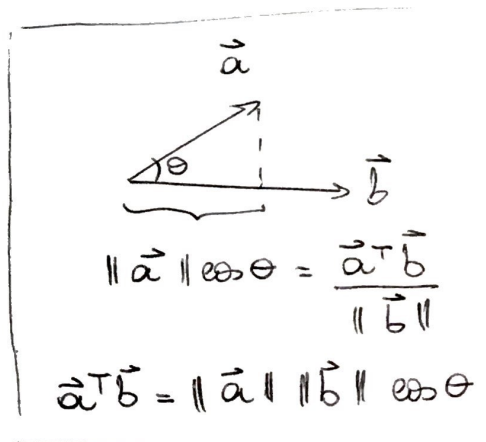 a⃗
θ
b⃗
‖a⃗‖ cosθ = a⃗ᵀb⃗ / ‖b⃗‖
a⃗ᵀb⃗ = ‖a⃗‖ ‖b⃗‖ cosθ